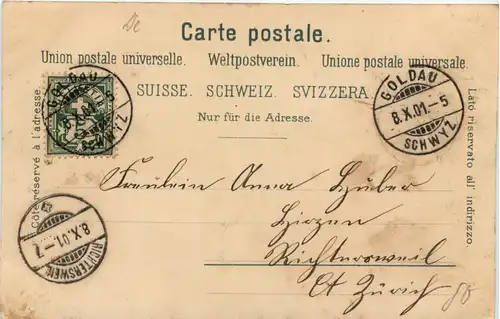 De
Carte postale.
Union postale universelle. Weltpostverein. Unione postale universale.
SUISSE. SCHWEIZ. SVIZZERA.
Nur für die Adresse.
Côté réservé à l'adresse.
Lato riservato all' indirizzo.
GOLDAU
GOLDAU
8.X.01.-5
SCHWYZ
RICHTERSWEIL
8.X.01.-7
Fräulein Anna Huber
Hirzen
Richtersweil
Ct Zürich